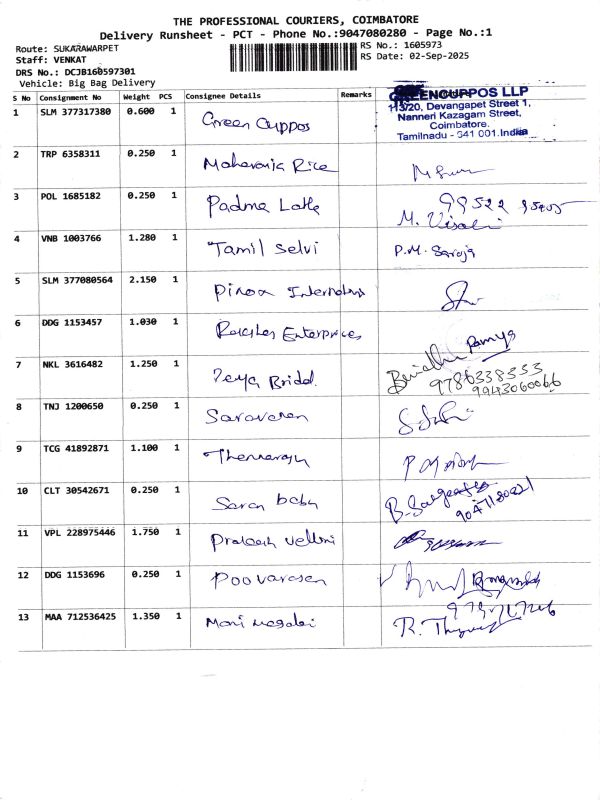 THE PROFESSIONAL COURIERS, COIMBATORE
Delivery Runsheet - PCT - Phone No.:9047080280 - Page No.:1
Route: SUKARAWARPET
RS No.: 1605973
Staff: VENKAT
RS Date: 02-Sep-2025
DRS No.: DCJB160597301
Vehicle: Big Bag Delivery
S No Consignment No Weight PCS Consignee Details Remarks
GREENCUPPOS LLP
113/20, Devangapet Street 1,
Nanneri Kazagam Street,
Coimbatore.
Tamilnadu - 641 001. India
1 SLM 377317380 0.600 1 Green Cuppos
2 TRP 6358311 0.250 1 Maharaja Rice
3 POL 1685182 0.250 1 Padma Latha
99522
M. Visalai
4 VNB 1003766 1.280 1 Tamil Selvi P.M. Saroja
5 SLM 377080564 2.150 1 International
6 DDG 1153457 1.030 1 Enterprises
Ramya
7 NKL 3616482 1.250 1
9786338333
9943060066
8 TNJ 1200650 0.250 1 Saravanan
9 TCG 41892871 1.100 1
10 CLT 30542671 0.250 1 Saran babu
11 VPL 228975446 1.750 1 Prakash
12 DDG 1153696 0.250 1 Poovarasan
13 MAA 712536425 1.350 1 Mani